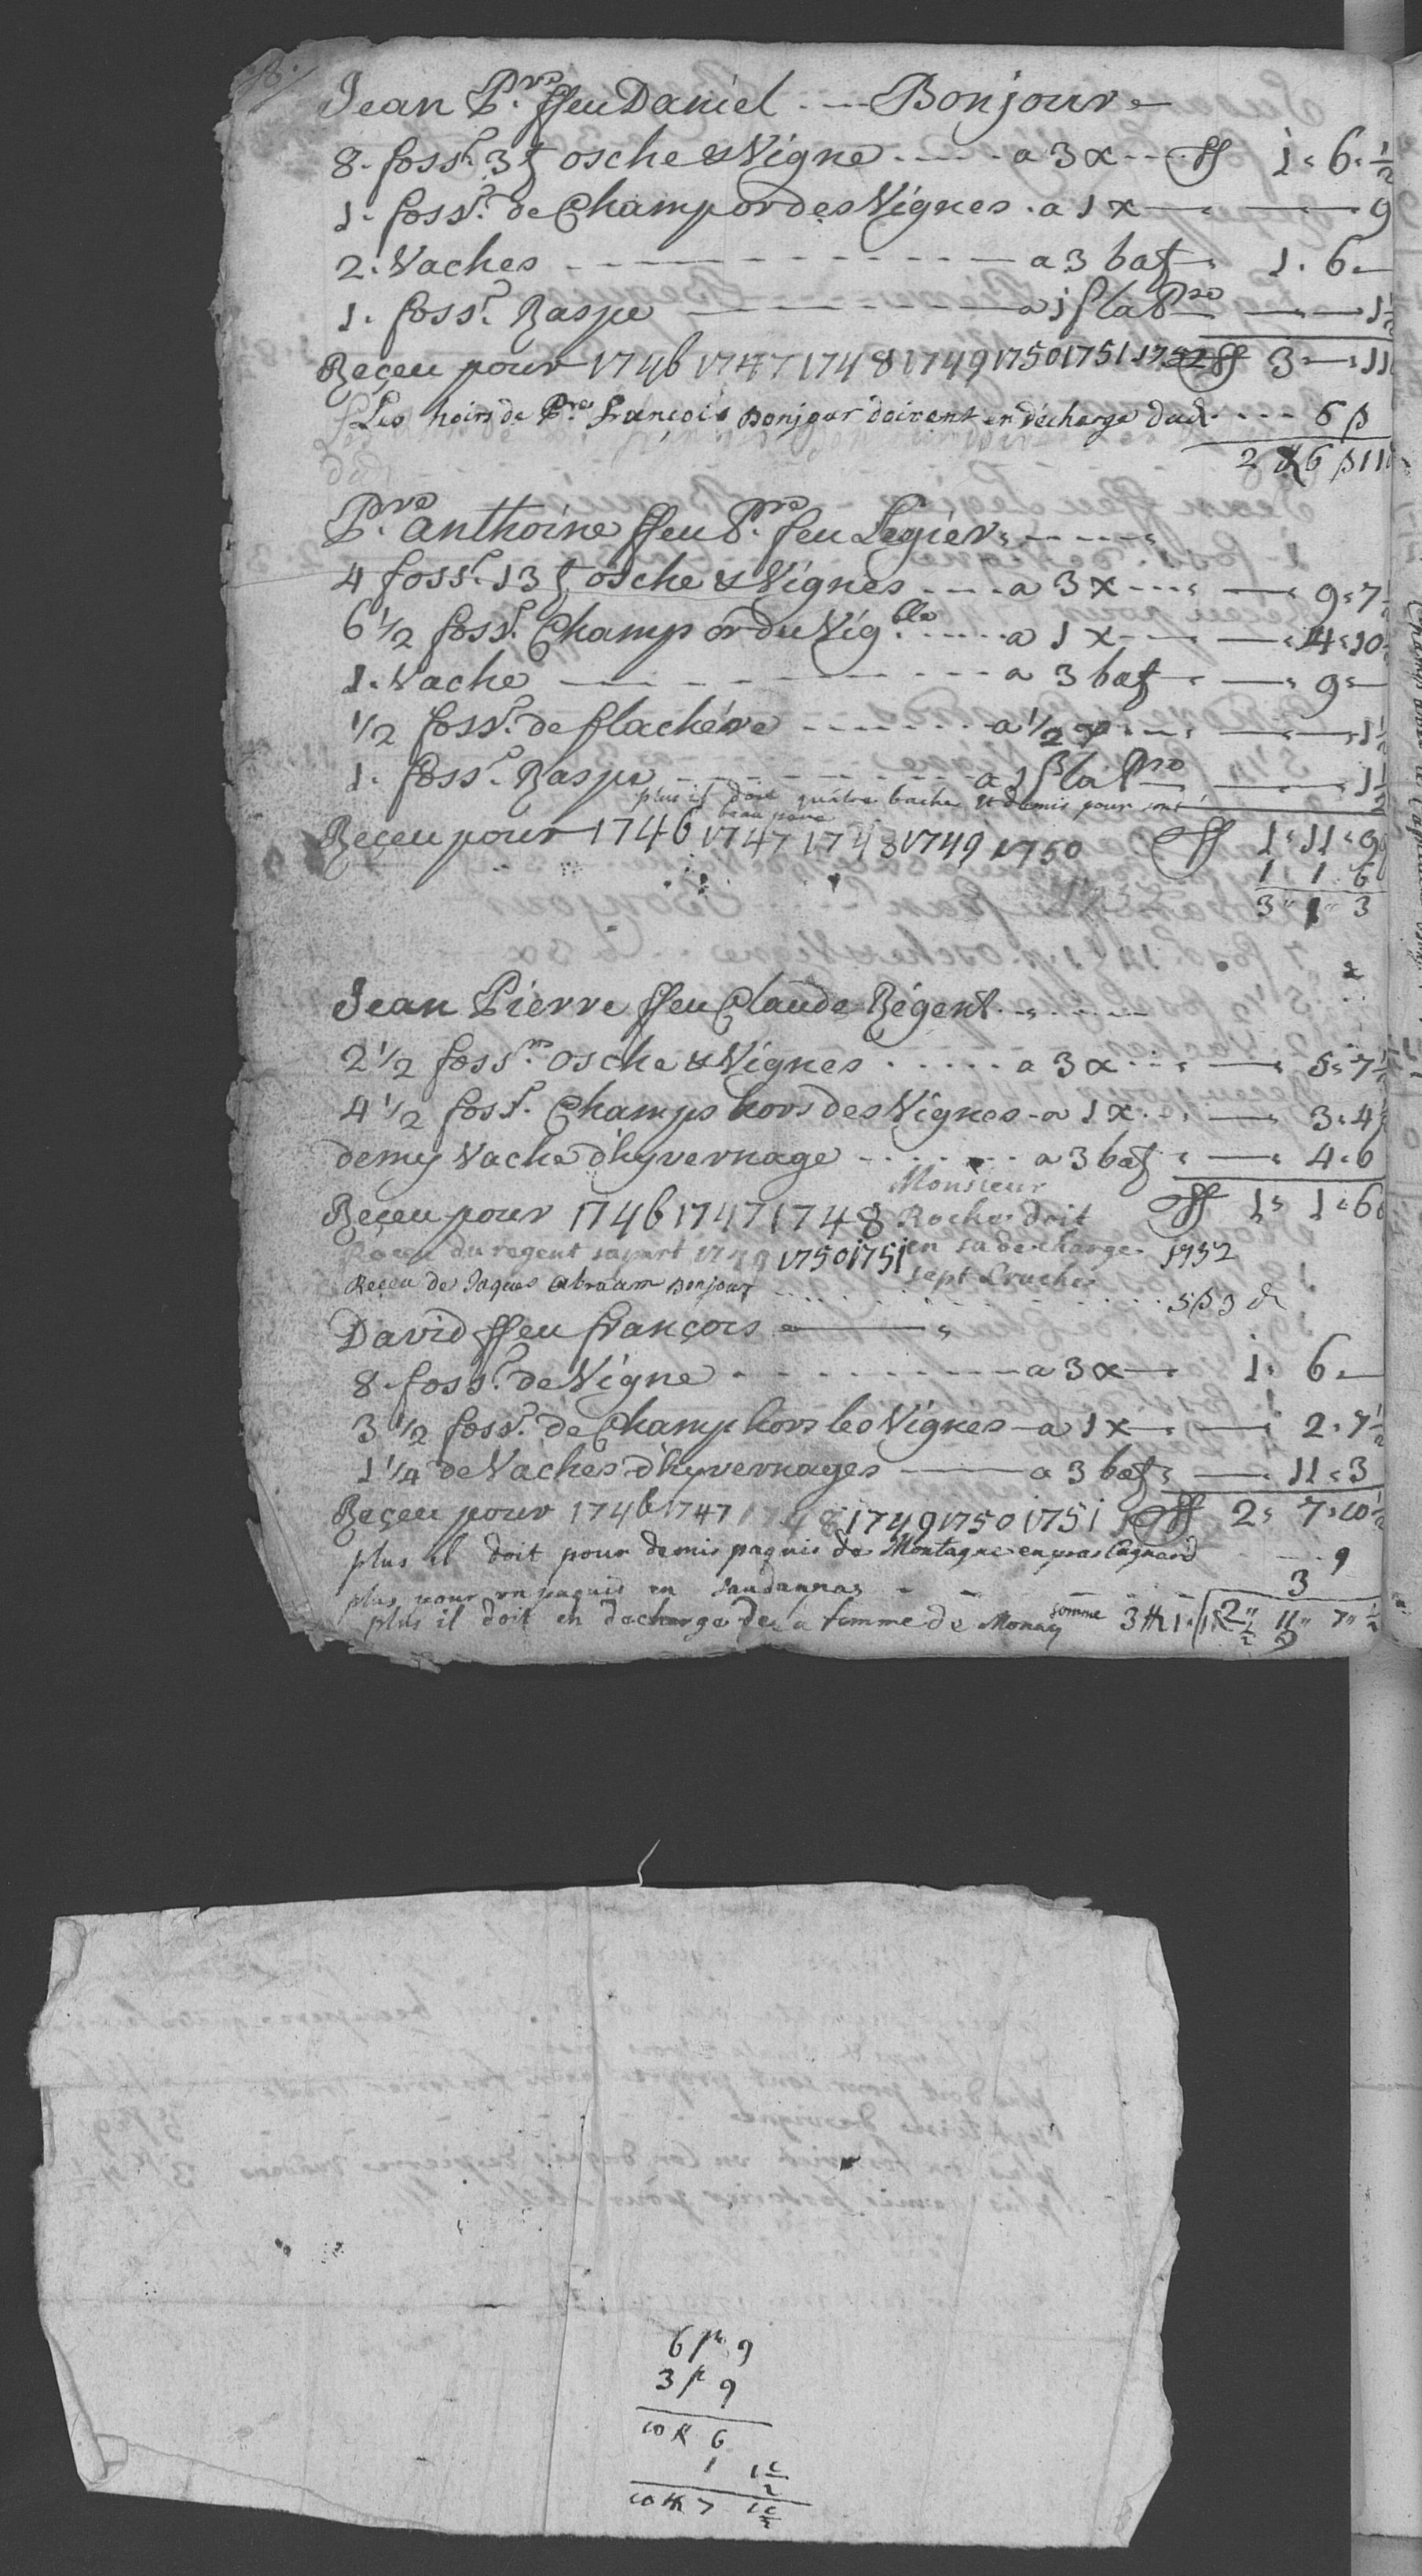 Jean P.re ffeu Daniel . . — Bonjour —
8. foss.r 3 ţ osche & Vigne . . . . . a 3 x . . . . ff 1 « 6 « ½
1. foss.r de Champ or des Vignes . a 1 x — — 9
2. Vaches — — — a 3 batz « 1 . 6 « —
1. foss.r Raspe — — a 1 ß la P.re — — 1 ½
Reçeu pour 1746 1747 1748 1749 1750 1751 1752 ff 3 « — « 11
Les hoirs de P.re françois Bonjour doivent en décharge dud. . . . . 6 ß
2 ff 6 ß 11
P.re anthoine ffeu P.re feu Legier « . . . . . «
4 foss.r 13 ţ osche & Vignes . . . . a 3 x . . . . « — « 9 « 7
6 ½ foss.r Champ or du Vig.ble . . . . . a 1 x — . — — « 4 « 10
1. Vache — — — a 3 batz « — « 9 « —
½ foss.r de flachére . . . . . . . a ½ x . — « — — « 1 ½
1. foss.r Raspe — — a 1 ß la P.re — — 1 ½
plus il doit quatre bache & demis pour sont
beau pere
Reçeu pour 1746 1747 1748 1749 1750 ff 1 « 11 « 9
1 1 6
3 " 1 " 3
Jean Pierre ffeu Claude Régent . « . . . . —
2 ½ foss.rs osche & Vignes . . . . . . a 3 x . . . « — « 5 « 7 ½
4 ½ foss.r Champs hors des Vignes - a 1 x . . « — « 3 « 4
demy Vache dhyvernage . . . . . . a 3 batz « — « 4 « 6
Reçeu pour 1746 1747 1748 ff 1 « 1 « 6
Monsieur
Rocher doit
en sa decharge
sept Cruches
Reçeu du regent sa part 1749 1750 1751 1752
Reçeu de Jaques Abraam Bonjour . . . . . 5 ß 3 d
David ffeu françois — «
8. foss.r de Vigne . . . . . . . — a 3 x — 1 « 6 « —
3 ½ foss.r de Champ hors les Vignes — a 1 x — — « 2 « 7 ½
1 ¼ de Vaches dhyvernages — a 3 batz « — « 11 « 3
Reçeu pour 1746 1747 1748 1749 1750 1751 ff 2 « 7 « 10 ½
plus il doit pour demis paquis de Montagne en pras Cagnard . . . . 9
plus pour un paquis en — — — 3
plus il doit en decharge de la femme de Monay somme 2 " 11 " 7 " ½
6 ß 9
3 ß 9
10 ß 6
1 1 ½
10 ß 7 1 ½